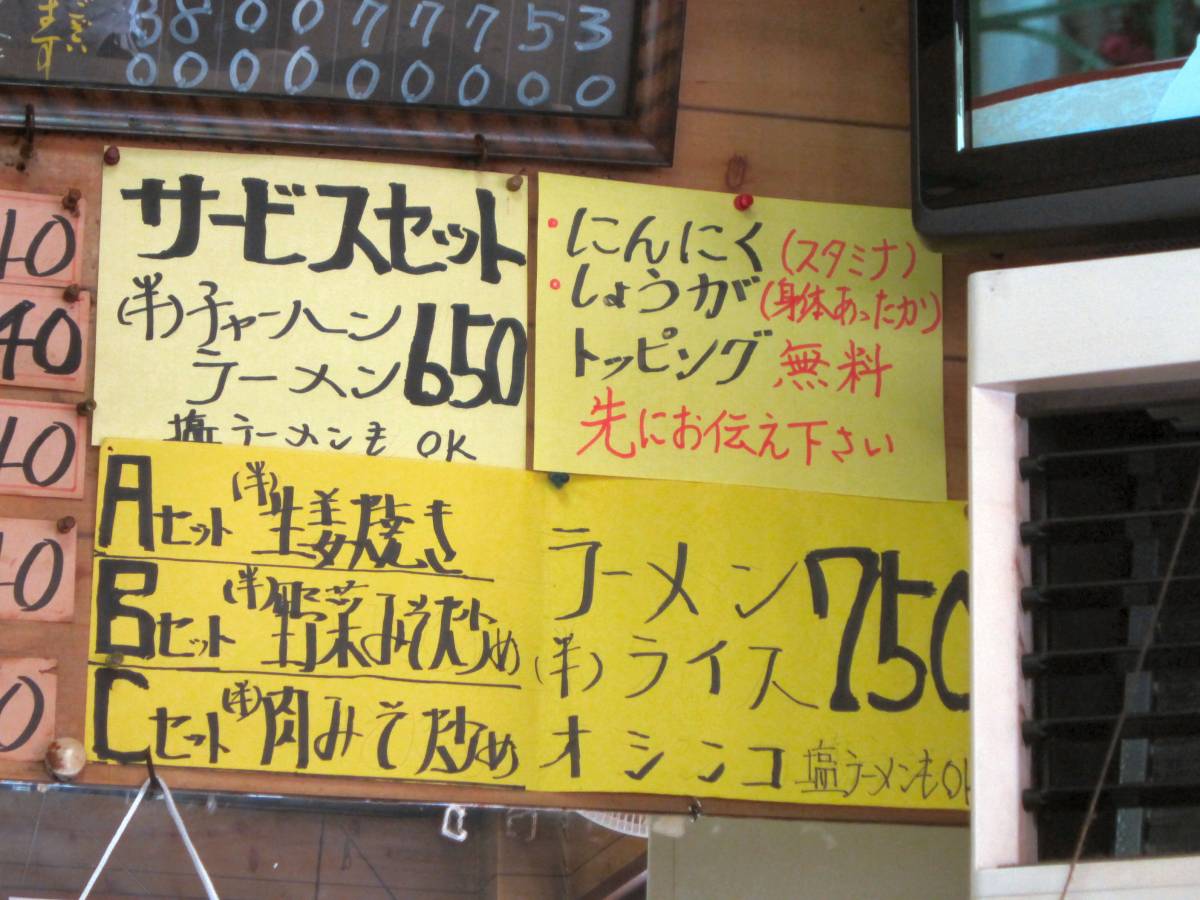 ございます
8800777753
0000000000
40
40
40
40
0
サービスセット
(半)チャーハン
ラーメン 650
塩ラーメンも OK
・にんにく(スタミナ)
・しょうが(身体あったか)
トッピング 無料
先にお伝え下さい
Aセット (半)生姜焼き
Bセット (半)野菜みそ炒め
Cセット (半)肉みそ炒め
ラーメン 750
(半)ライス
オシンコ 塩ラーメンもOK